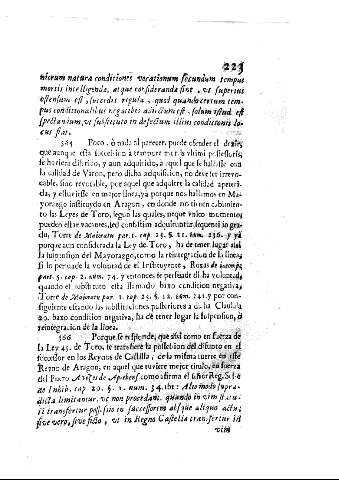 223
niorum natura conditiones vocationum secundum tempus
mortis intelligenda, atque consideranda sint, ut superius
ostensum est, succedet regula, quod quando certum tem-
pus conditionalibus negativis adiectum est, solum istud est
spectandum, ut substituto in defectum illius conditionis lo-
cus fiat.
365 Poco, ò nada al parecer, puede ofender el dezir,
que aunque esta succession à tempore mortis vltimi possessoris,
se huviera diferido, y aun adquirido, à aquel que se hallasse con
la calidad de Varon, pero dicha adquisicion, no devia ser irrevo-
cable, sino revocable, por aquel que adquiere la calidad apeteci-
da, y estuviesse en mejor linea, ya porque nos hallamos en Ma-
yorazgo instituydo en Aragon, en donde no tienen cabimien-
to las Leyes de Toro, segun las quales, neque vnico momento
pueden estar vacantes, sed constitim adquiruntur sequenti in gra-
du, Torre de Maioratu par. 1. cap. 25. §. 21. num. 236. y ya
porque aun considerada la Ley de Toro, ha de tener lugar assi
la suspension del Mayorazgo, como la reintegracion de la linea
si lo persuade la voluntad de el Instituyente, Roxas de incomp.
part. 5. cap. 2. num. 74. y entonces se persuade dicha voluntad,
quando el substituto esta llamado baxo condicion negativa,
Torre de Maioratu par. 1. cap. 25. §. 12. num. 241. y por con-
siguiente estando las substituciones posteriores à dicha Clausula
20. baxo condicion negativa, ha de tener lugar la suspension, ò
reintegracion de la linea.
366 Porque se responde, que assi como en fuerza de
la Ley 45. de Toro, se transfiere la possession del difunto en el
sucessor en los Reynos de Castilla; de la misma suerte en este
Reyno de Aragon, en aquel que tuviere mejor titulo, en fuerza
del Fuero
de Inhib. cap. 20. §. 1. num. 34. ibi: Alio modo supra-
dicta limitantur, ut non procedant, quando in vim statu-
ti transfertur possessio in successorem absque aliquo actu;
sive vero, sive ficto, ut in Regno Castellæ transfertur in
vim